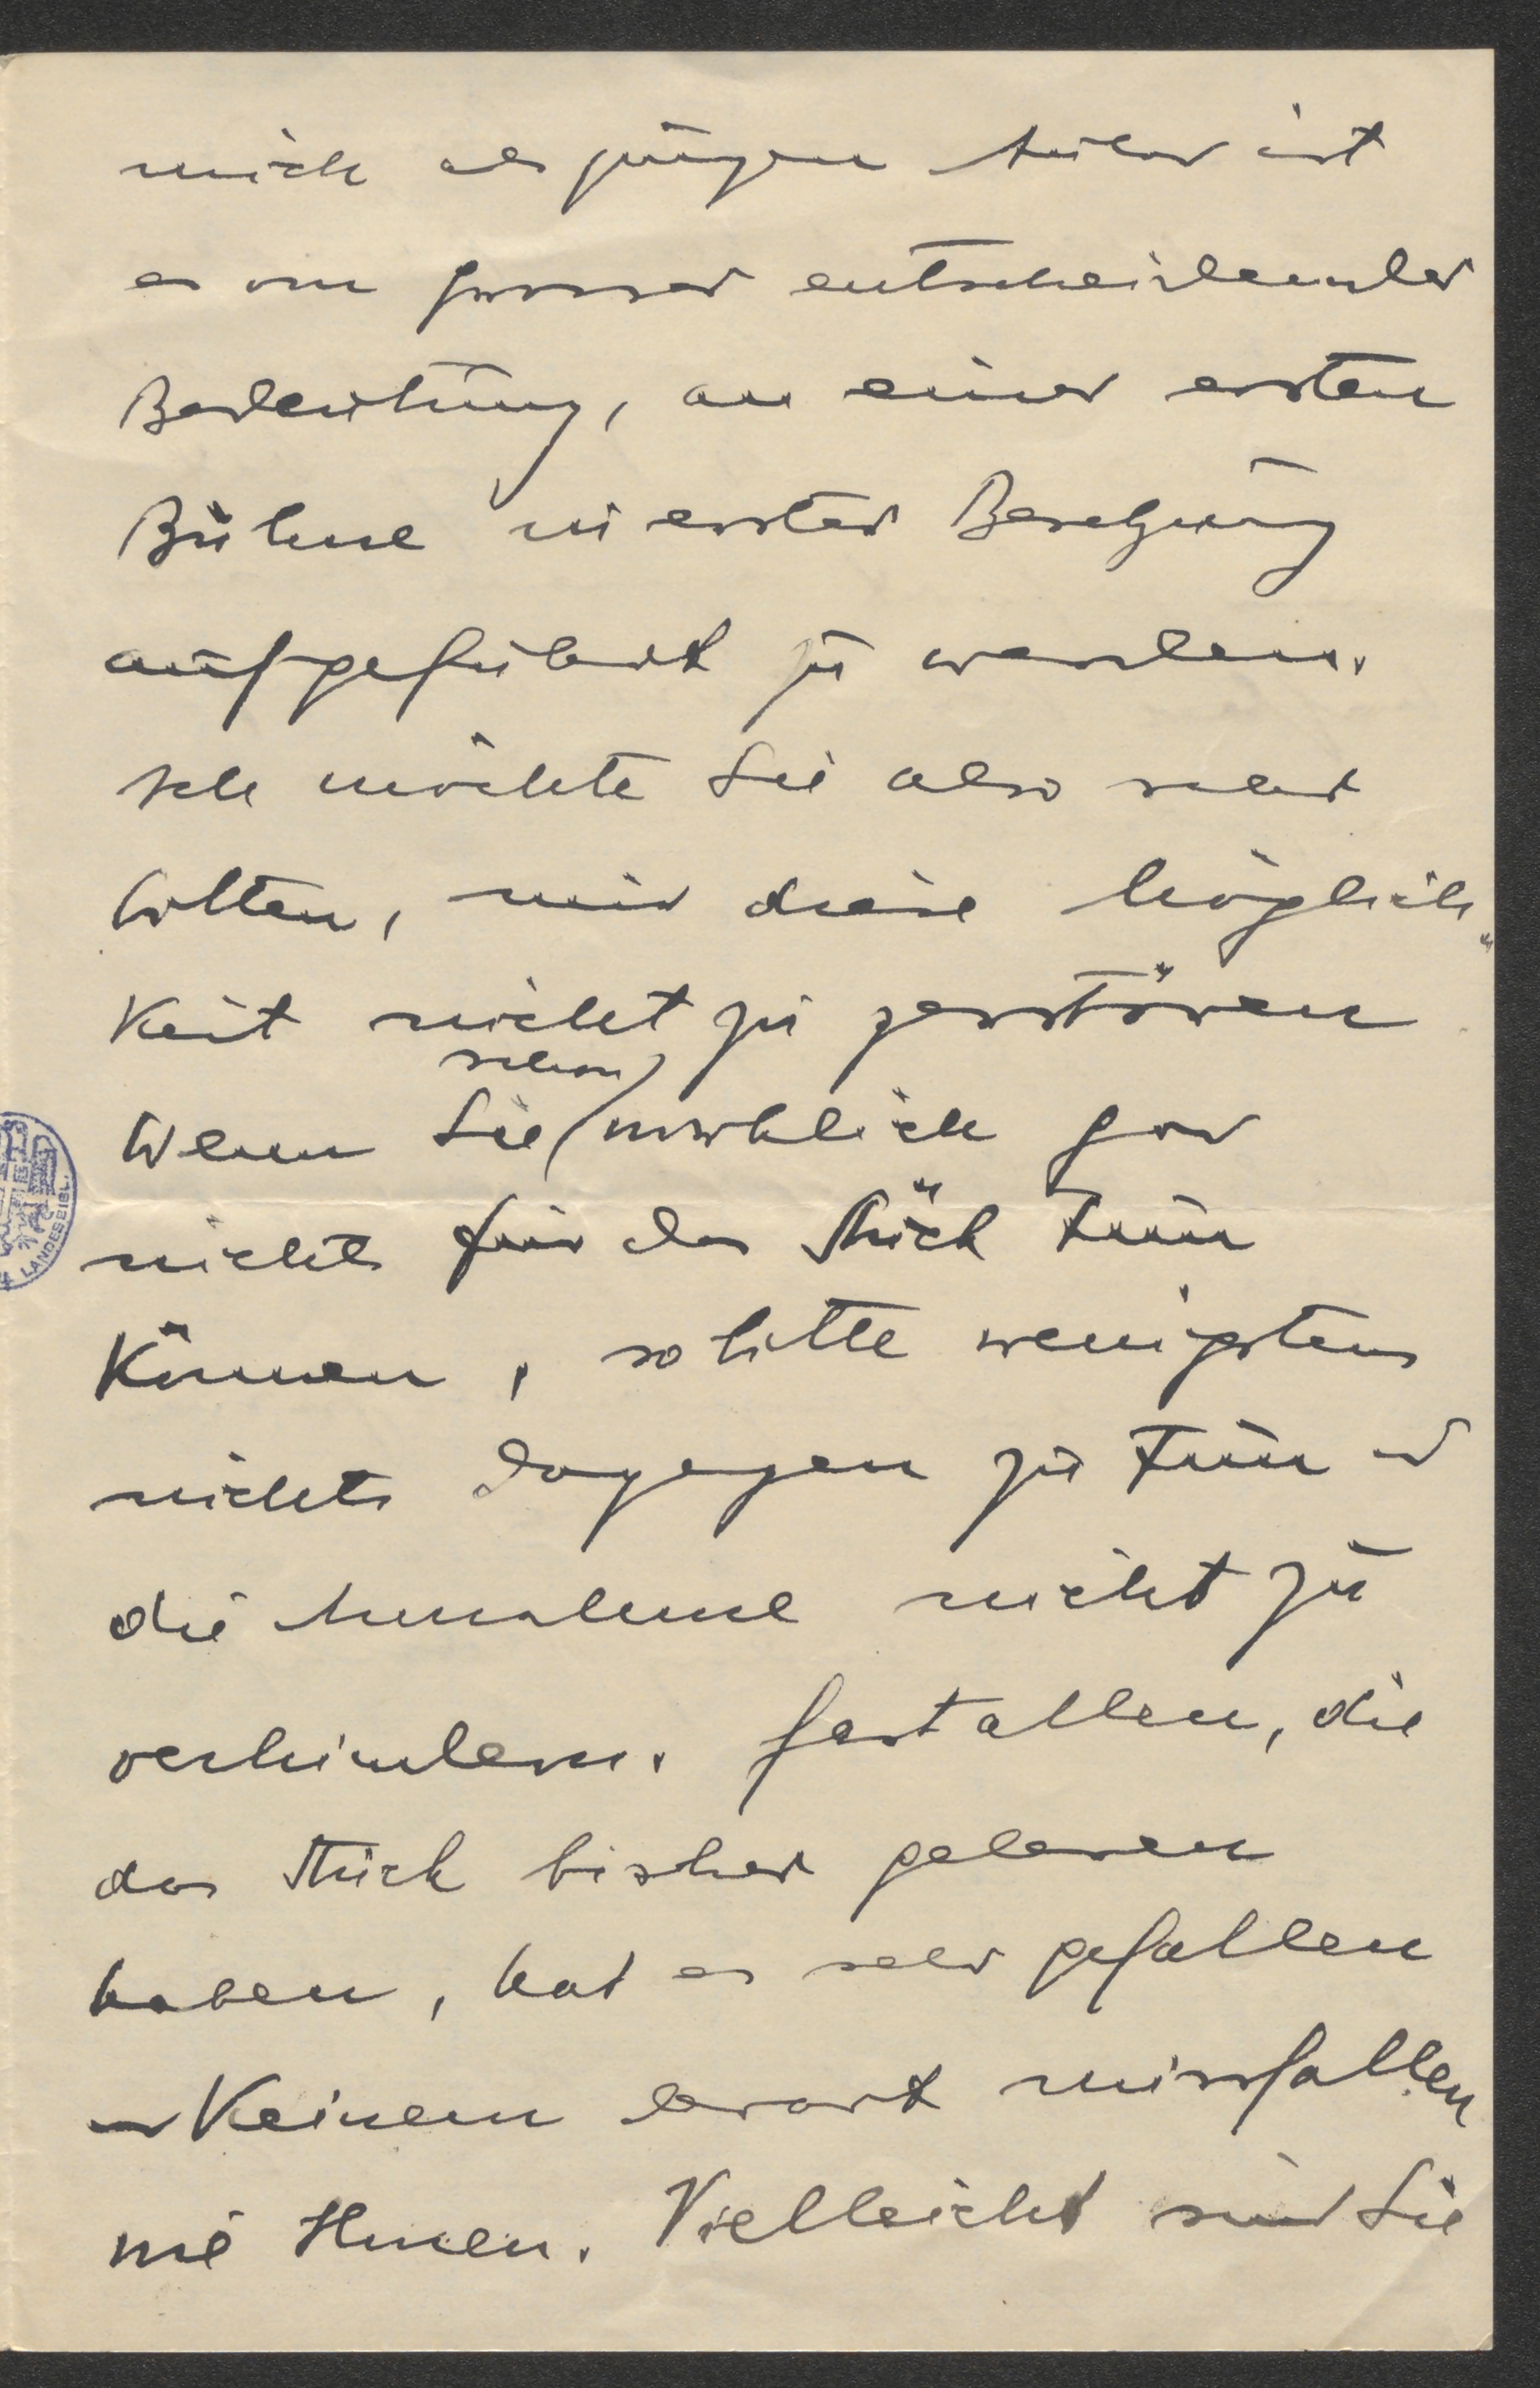 mich als jungen Autor ist
es von grosser entscheidender
Bedeutung, an einer ersten
Bühne in erster Besetzung
aufgeführt zu werden.
Ich möchte Sie also sehr
bitten, mir diese Möglich"
keit nicht zu zerstören
schon
Wenn Sie wirklich gar
nichts für das Stück tun
können, so bitte wenigstens
nichts dagegen zu tun u
die Annahme nicht zu
verhindern. Fast allen, die
das Stück bisher gelesen
haben, hat es sehr gefallen
u keinem derart missfallen
wie Ihnen. Vielleicht sind Sie
LANDESBIBL.